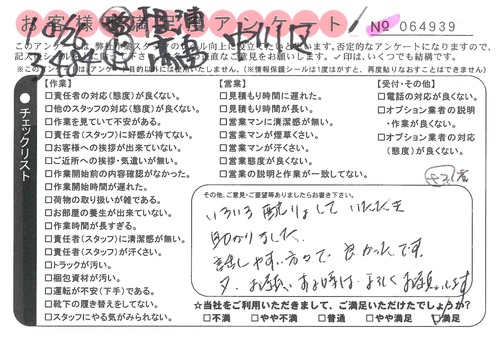 お客様 満 アンケート
No 064939
中川区
このアンケートは、弊社
否定的なアンケートになりますので、
ご意見をお願いします。✓印は、いくつでも結構です。
※このアンケートは 目的以外には使用いたしません。(※情報保護シールは1度はがすと、再度貼りなおすことはできません)
チェックリスト
【作業】
□責任者の対応(態度)が良くない。
□他のスタッフの対応(態度)が良くない。
□作業を見ていて不安がある。
□責任者(スタッフ)に好感が持てない。
□お客様への挨拶が出来ていない。
□ご近所への挨拶・気遣いが無い。
□作業開始前の内容確認がなかった。
□作業開始時間が遅れた。
□荷物の取り扱いが雑である。
□お部屋の養生が出来ていない。
□作業時間が長すぎる。
□責任者(スタッフ)に清潔感が無い。
□責任者(スタッフ)が汗くさい。
□トラックが汚い。
□梱包資材が汚い。
□運転が不安(下手)である。
□靴下の履き替えをしてない。
□スタッフにやる気がみられない。
【営業】
□見積もり時間に遅れた。
□見積もり時間が長い。
□営業マンに清潔感が無い。
□営業マンが煙草くさい。
□営業マンが汗くさい。
□営業態度が良くない。
□営業の説明と作業が一致してない。
【受付・その他】
□電話の対応が良くない。
□オプション業者の説明・作業が良くない。
□オプション業者の対応(態度)が良くない。
その他、ご意見・ご要望等ありましたらお書き下さい。
いろいろ配りょして いただき
助かりました。
話しやすい方々で 良かったです。
又、お引越しする時は よろしくお願いします
☆当社をご利用いただきまして、ご満足いただけたでしょうか?
□不満 □やや不満 □普通 □やや満足 ☑満足